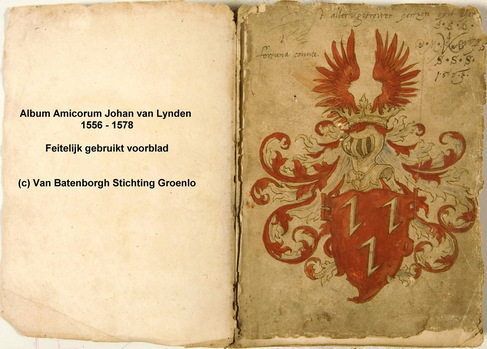 Album Amicorum Johan van Lynden
1556 - 1578
Feitelijk gebruikt voorblad
(c) Van Batenborgh Stichting Groenlo
fortuna comite